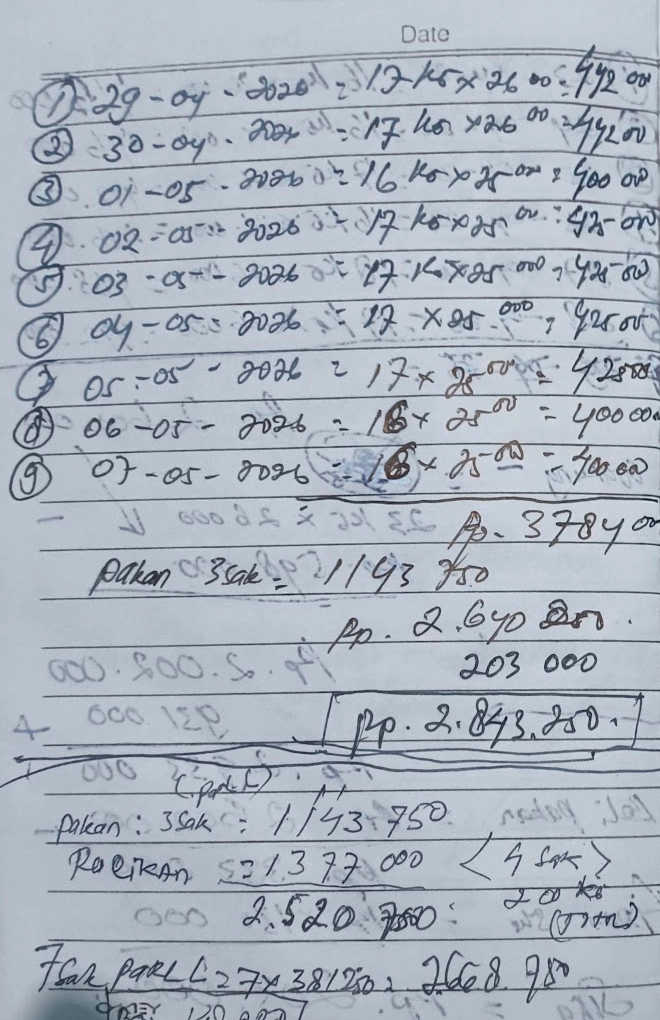 Date
① 29-04-2026 = 17 kg x 26 00 = 442 00
② 30-04-2026 = 17 kg x 26 00 = 442 00
③ 01-05-2026 = 16 kg x 25 000 = 400 000
④ 02-05-2026 = 17 kg x 25 00 = 425 000
⑤ 03-05-2026 = 17 kg x 25 000 = 425 00
⑥ 04-05-2026 = 17 x 25 000 = 425 00
⑦ 05-05-2026 = 17 x 25 00 = 425 00
⑧ 06-05-2026 = 16 x 25 00 = 400 000
⑨ 07-05-2026 = 16 x 25 00 = 400 000
Rp. 3784 00
pakan 3 sak = 1143 750
Rp. 2.640 250.
203 000
Rp. 2.843.250.
pakan : 3 sak = 1143.750
Racikan = 1.377 000 <4 sak>
2.520 750 200 kg
7 sak Par L = 7 x 381250 = 2668.750